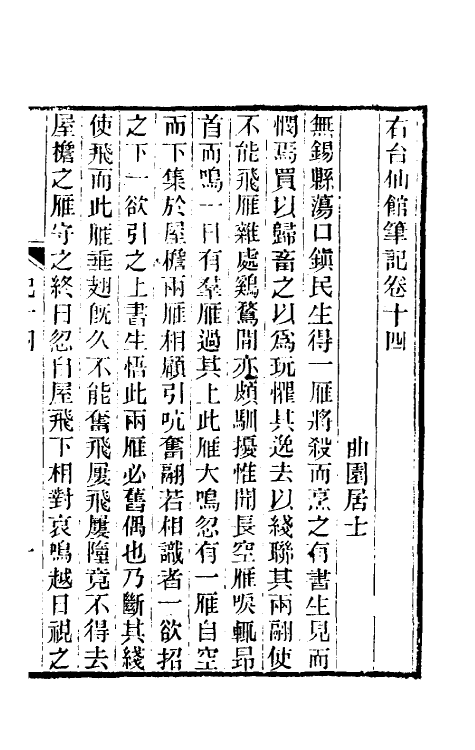 右台仙館筆記卷十四
曲園居士
無錫縣蕩口鎭民生得一雁將殺而烹之有書生見而
憫焉買以歸畜之以爲玩懼其逸去以綫聯其兩翮使
不能飛雁雜處鷄鶩閒亦頗馴擾惟聞長空雁唳輒昂
首而鳴一日有羣雁過其上此雁大鳴忽有一雁自空
而下集於屋檐兩雁相顧引吭奮翮若相識者一欲招
之下一欲引之上書生悟此兩雁必舊偶也乃斷其綫
使飛而此雁垂翅旣久不能奮飛屢飛屢墮竟不得去
屋檐之雁守之終日忽自屋飛下相對哀鳴越日視之